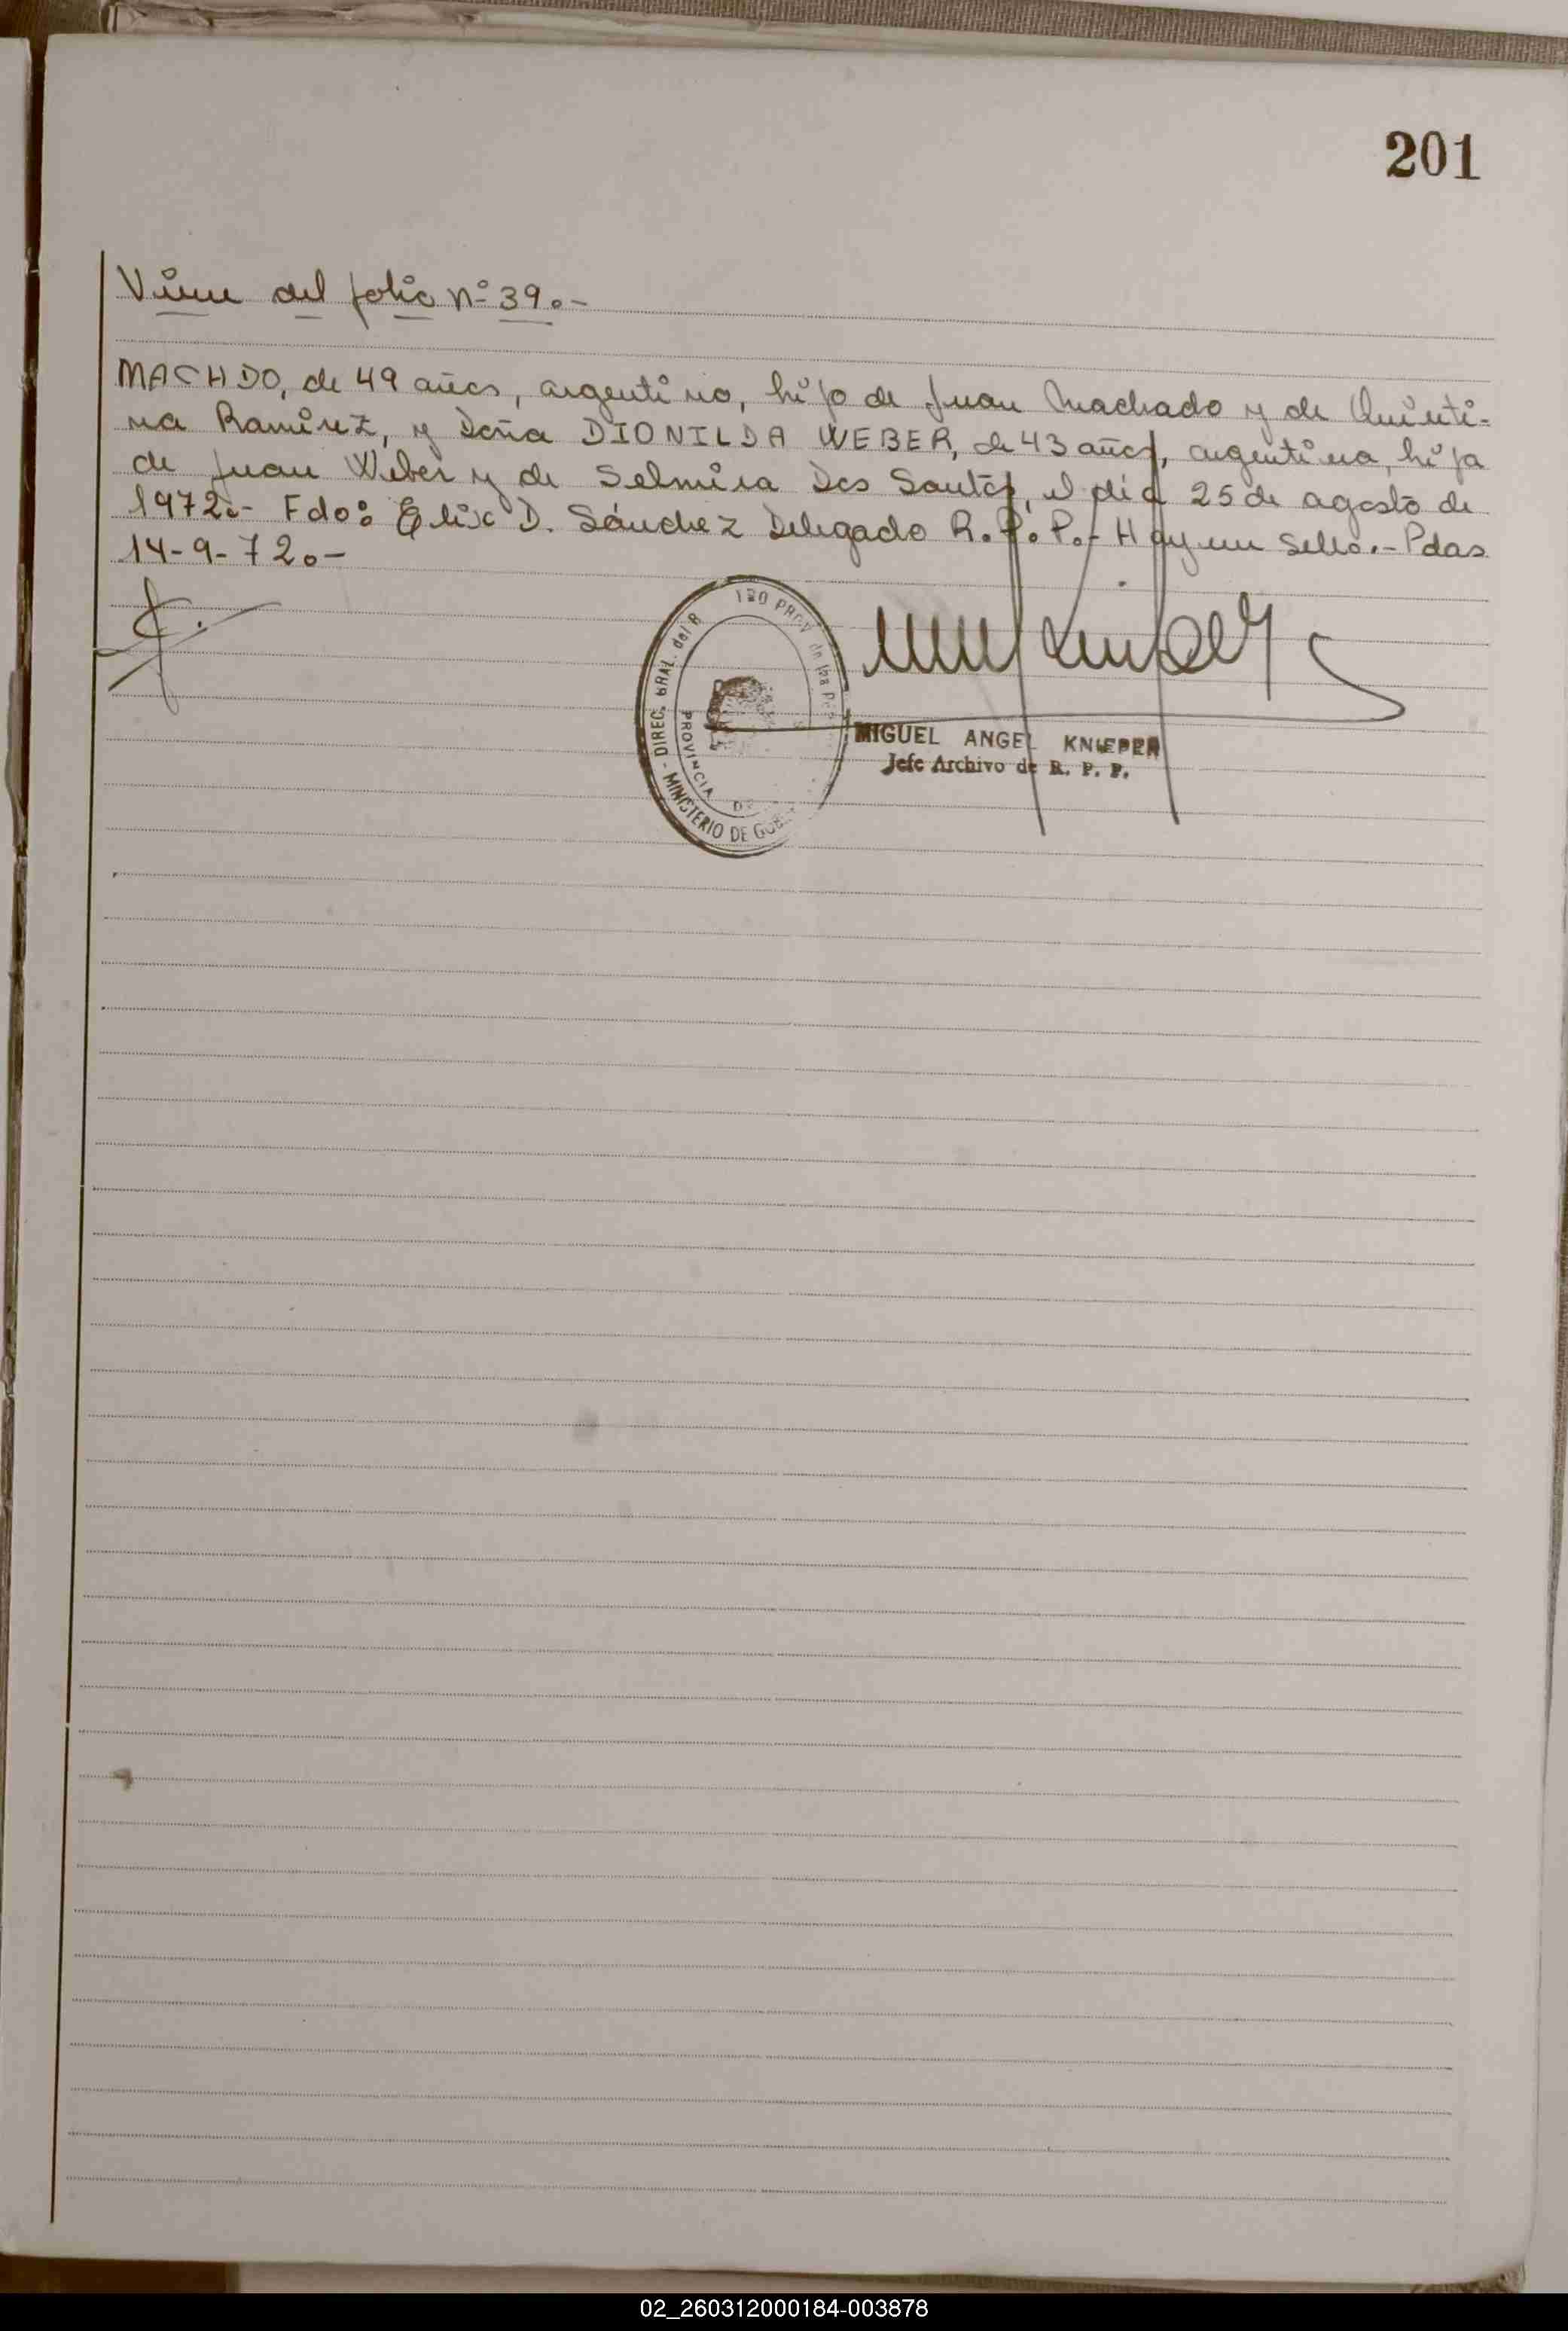 201
Viene del folio Nº 39.-
MACHDO, de 49 años, argentino, hijo de Juan Machado y de Quinti-
na Ramírez, y Doña DIONILDA WEBER, de 43 años, argentina, hija
de Juan Weber y de Selmira Dos Santos, el día 25 de agosto de
1972.- Fdo: Elix D. Sánchez Delegado R.P.P.- Hay un sello.- Pdas
14-9-72.-
- DIREC. GRAL. del R PROV de las Per
PROVINCIA DE
MINISTERIO DE GOB
MIGUEL ANGEL KNIEPER
Jefe Archivo de R. P. P.
02_260312000184-003878